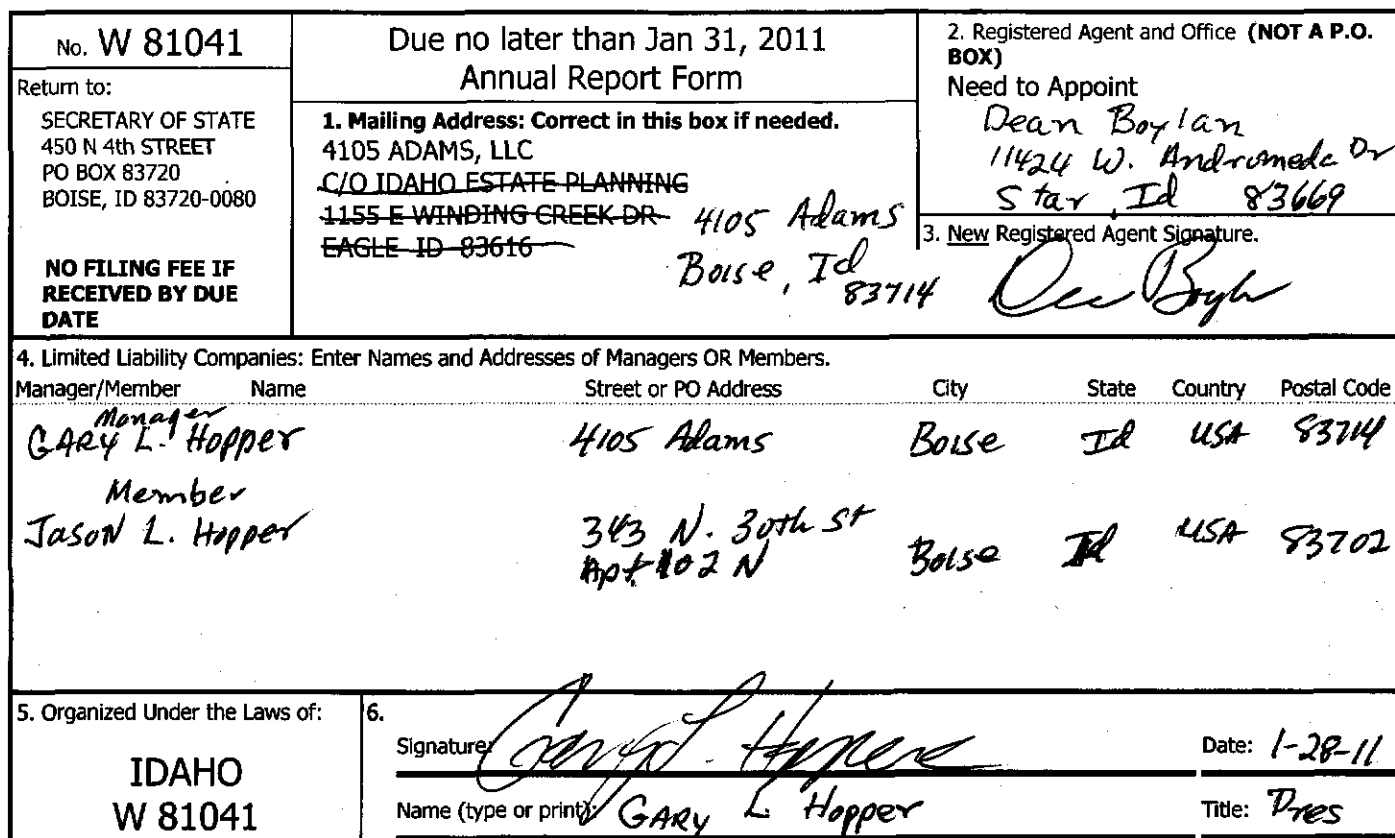 No. W 81041
Return to:
SECRETARY OF STATE
450 N 4th STREET
PO BOX 83720
BOISE, ID 83720-0080
NO FILING FEE IF
RECEIVED BY DUE
DATE
Due no later than Jan 31, 2011
Annual Report Form
1. Mailing Address: Correct in this box if needed.
4105 ADAMS, LLC
C/O IDAHO ESTATE PLANNING
1155 E WINDING CREEK DR
EAGLE ID 83616
4105 Adams
Boise, Id
83714
2. Registered Agent and Office (NOT A P.O.
BOX)
Need to Appoint
Dean Boylan
11424 W. Andromeda Dr
Star, Id 83669
3. New Registered Agent Signature.
4. Limited Liability Companies: Enter Names and Addresses of Managers OR Members.
Manager/Member Name Street or PO Address City State Country Postal Code
Manager
GARY L. Hopper 4105 Adams Boise Id USA 83714
Member
JASON L. Hopper 343 N. 30th St Boise Id USA 83702
Apt. 102 N
5. Organized Under the Laws of:
IDAHO
W 81041
6.
Signature: Gary L. Hopper Date: 1-28-11
Name (type or print): GARY L Hopper Title: Pres